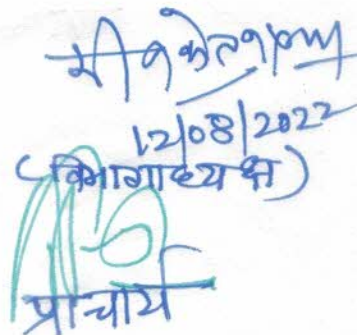 12/08/2022
(विभागाध्यक्ष)
प्राचार्य